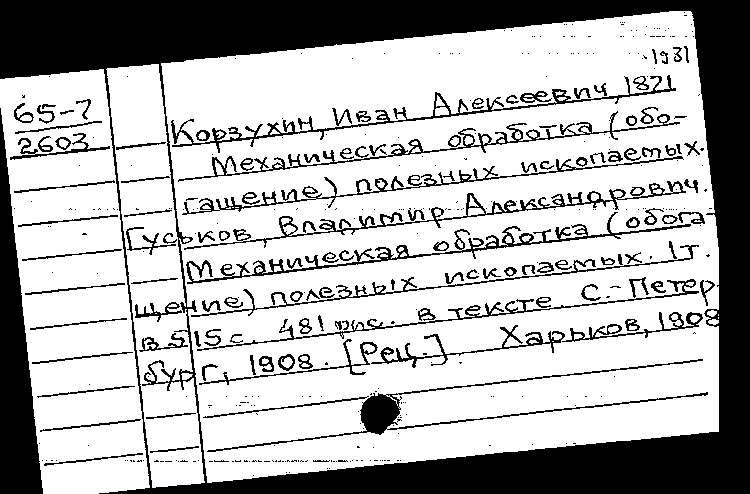 -1931
65-7
2603
Корзухин, Иван Алексеевич, 1871
Механическая обработка (обо-
гащение) полезных ископаемых.
Гуськов, Владимир Александрович.
Механическая обработка (обога-
щение) полезных ископаемых. 1т.
в 515 с. 481 рис. в тексте. С.-Петер
бург, 1908. [Рец.]. Харьков, 1908